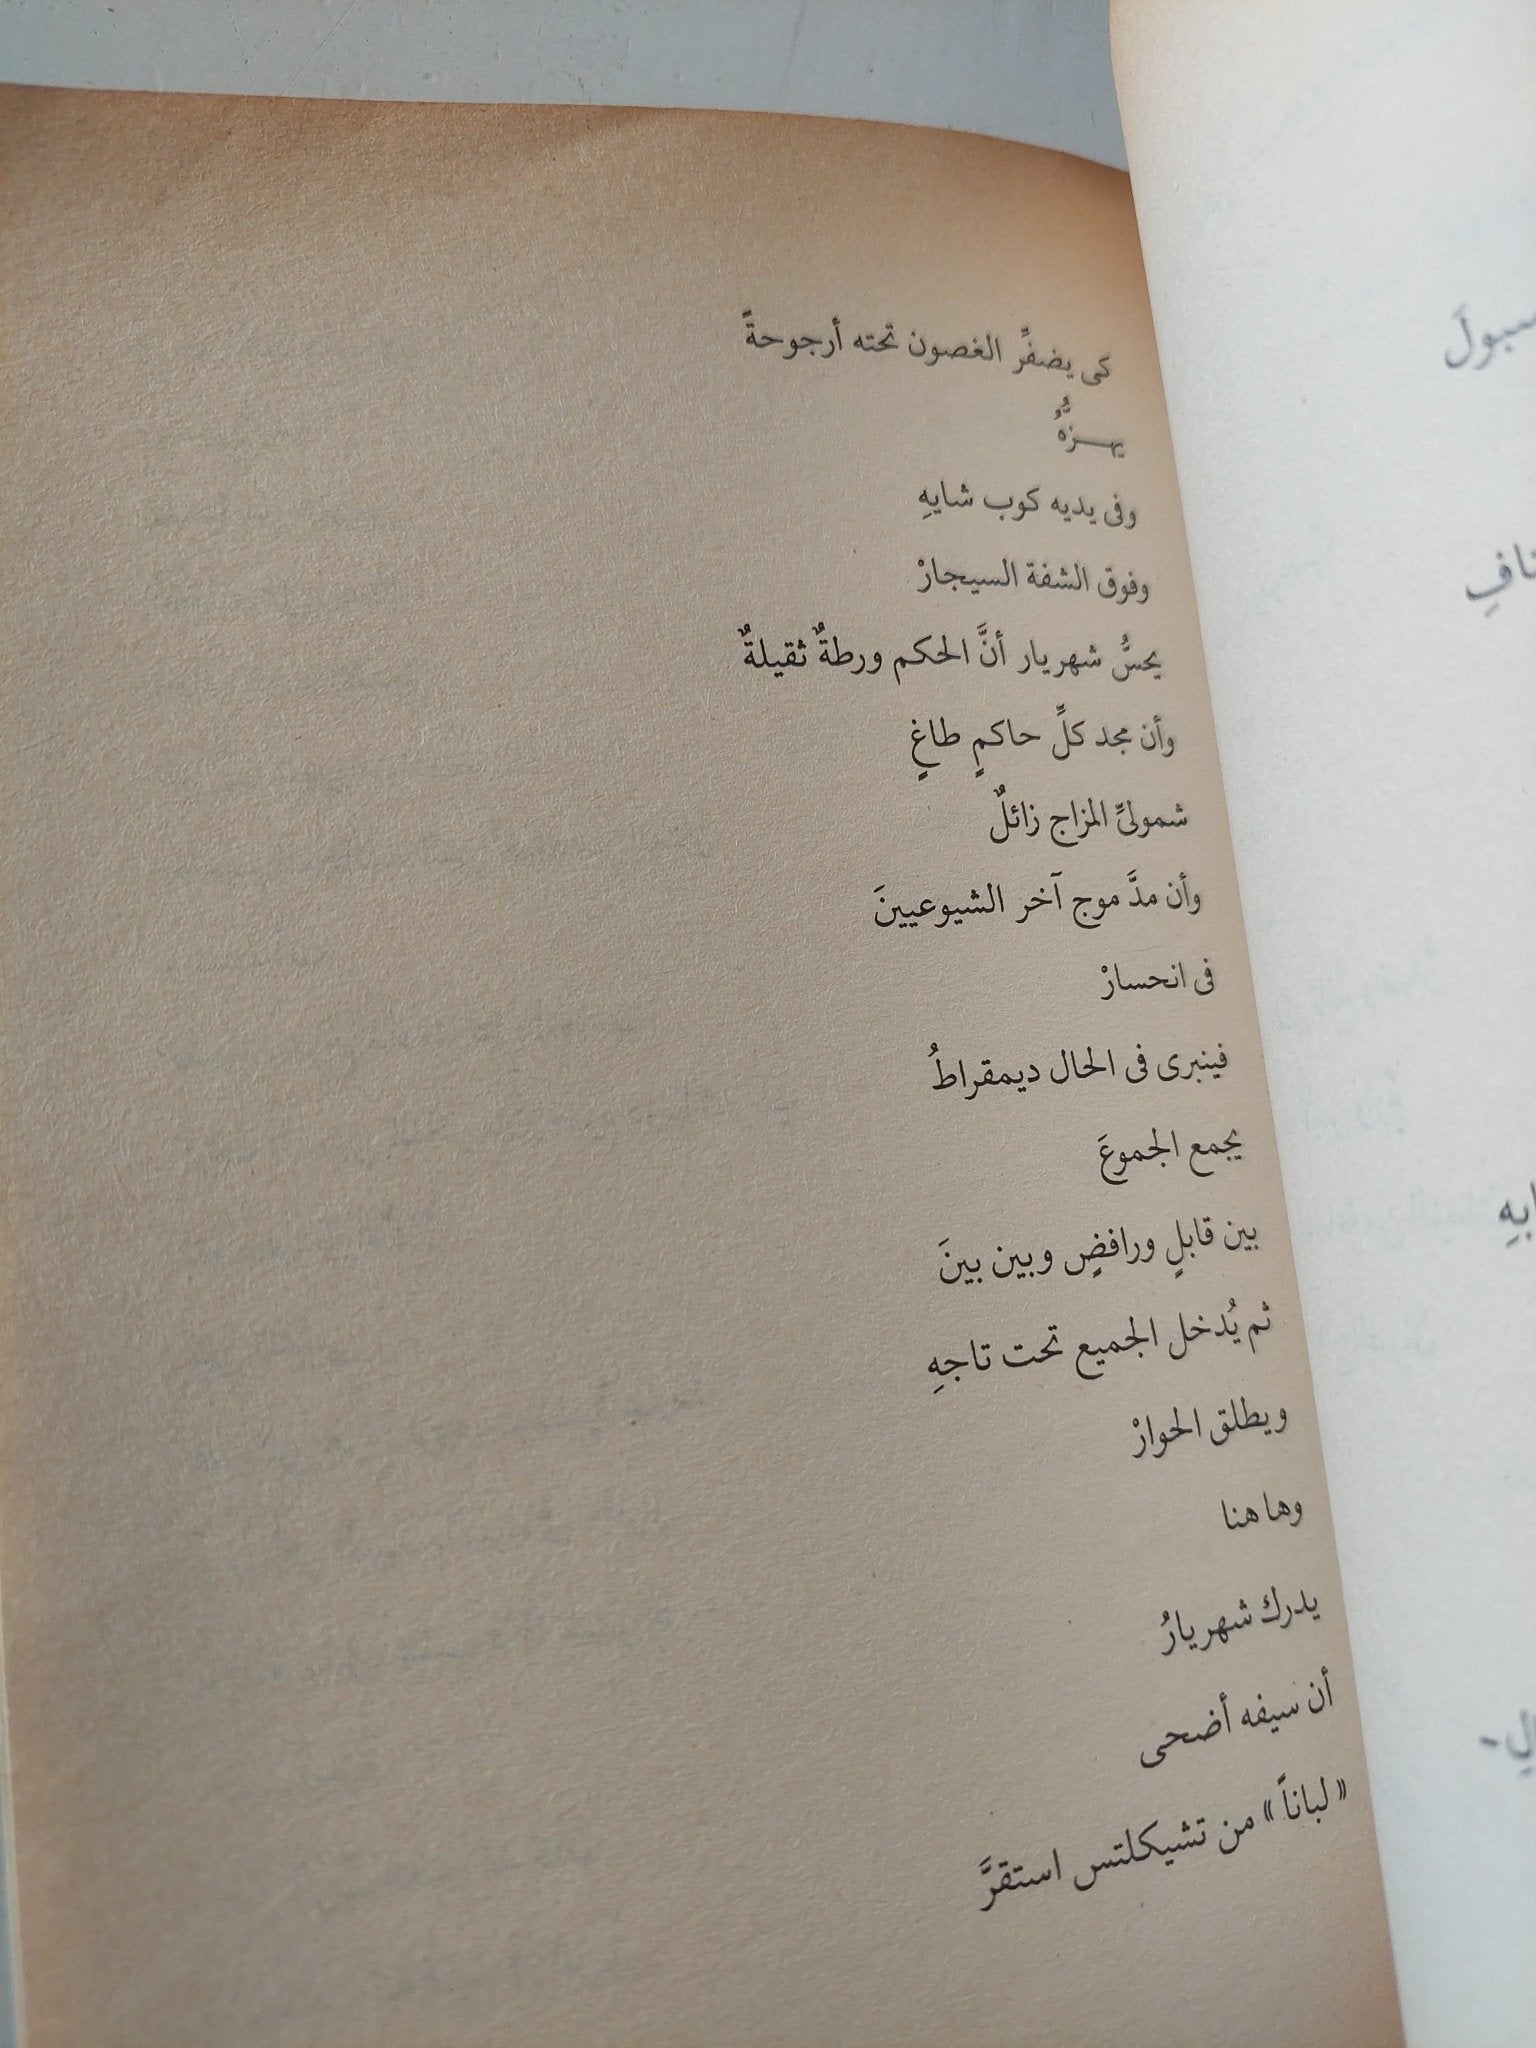 كى يضفِّر الغصون تحته أرجوحةً
يهـــزهُّ
وفى يديه كوب شايهِ
وفوق الشفة السيجارْ
يحسُّ شهريار أنَّ الحكم ورطةٌ ثقيلةٌ
وأن مجد كلِّ حاكمٍ طاغٍ
شمولىِّ المزاج زائلٌ
وأن مدَّ موج آخر الشيوعيينَ
فى انحسارْ
فينبرى فى الحال ديمقراطُ
يجمع الجموعَ
بين قابلٍ ورافضٍ وبين بينَ
ثم يُدخل الجميع تحت تاجهِ
ويطلق الحوارْ
وها هنا
يدرك شهريارُ
أن سيفه أضحى
« لباناً » من تشيكلتس استقرَّ